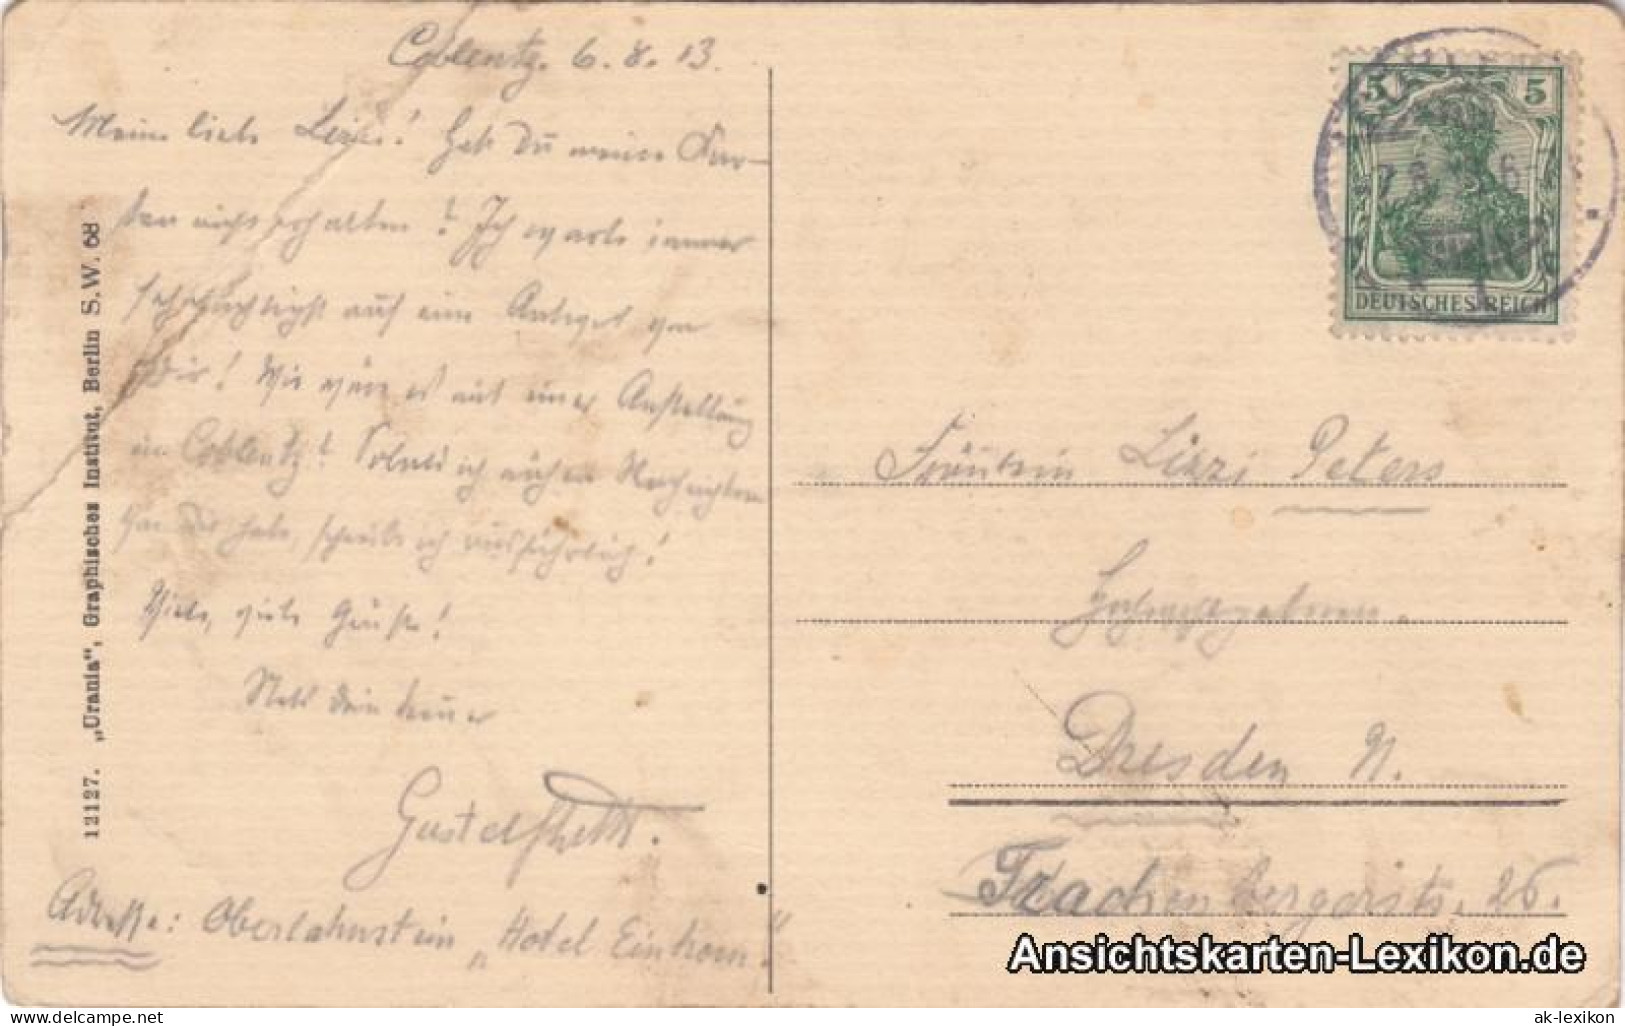 Coblentz. 6.8.13.
Meine liebe Lizzi! Hast Du meine Kar-
ten nicht erhalten? Ich warte immer
sehnsüchtigst auf eine Antwort von
Dir! Wie wäre es mit einer Anstellung
in Coblentz? Sobald ich nähere Nachrichten
von Dir habe, schreibe ich ausführlich!
Viele, viele Grüße!
Stets dein treuer
Gustel
Adresse: Oberlahnstein „Hotel Einhorn."
12127. „Urania", Graphisches Institut, Berlin S.W. 68
5 5
DEUTSCHES REICH
Fräulein Lizzi Peters
Dresden N.
Trachenbergerstr. 26.
Ansichtskarten-Lexikon.de
www.delcampe.net
ak-lexikon